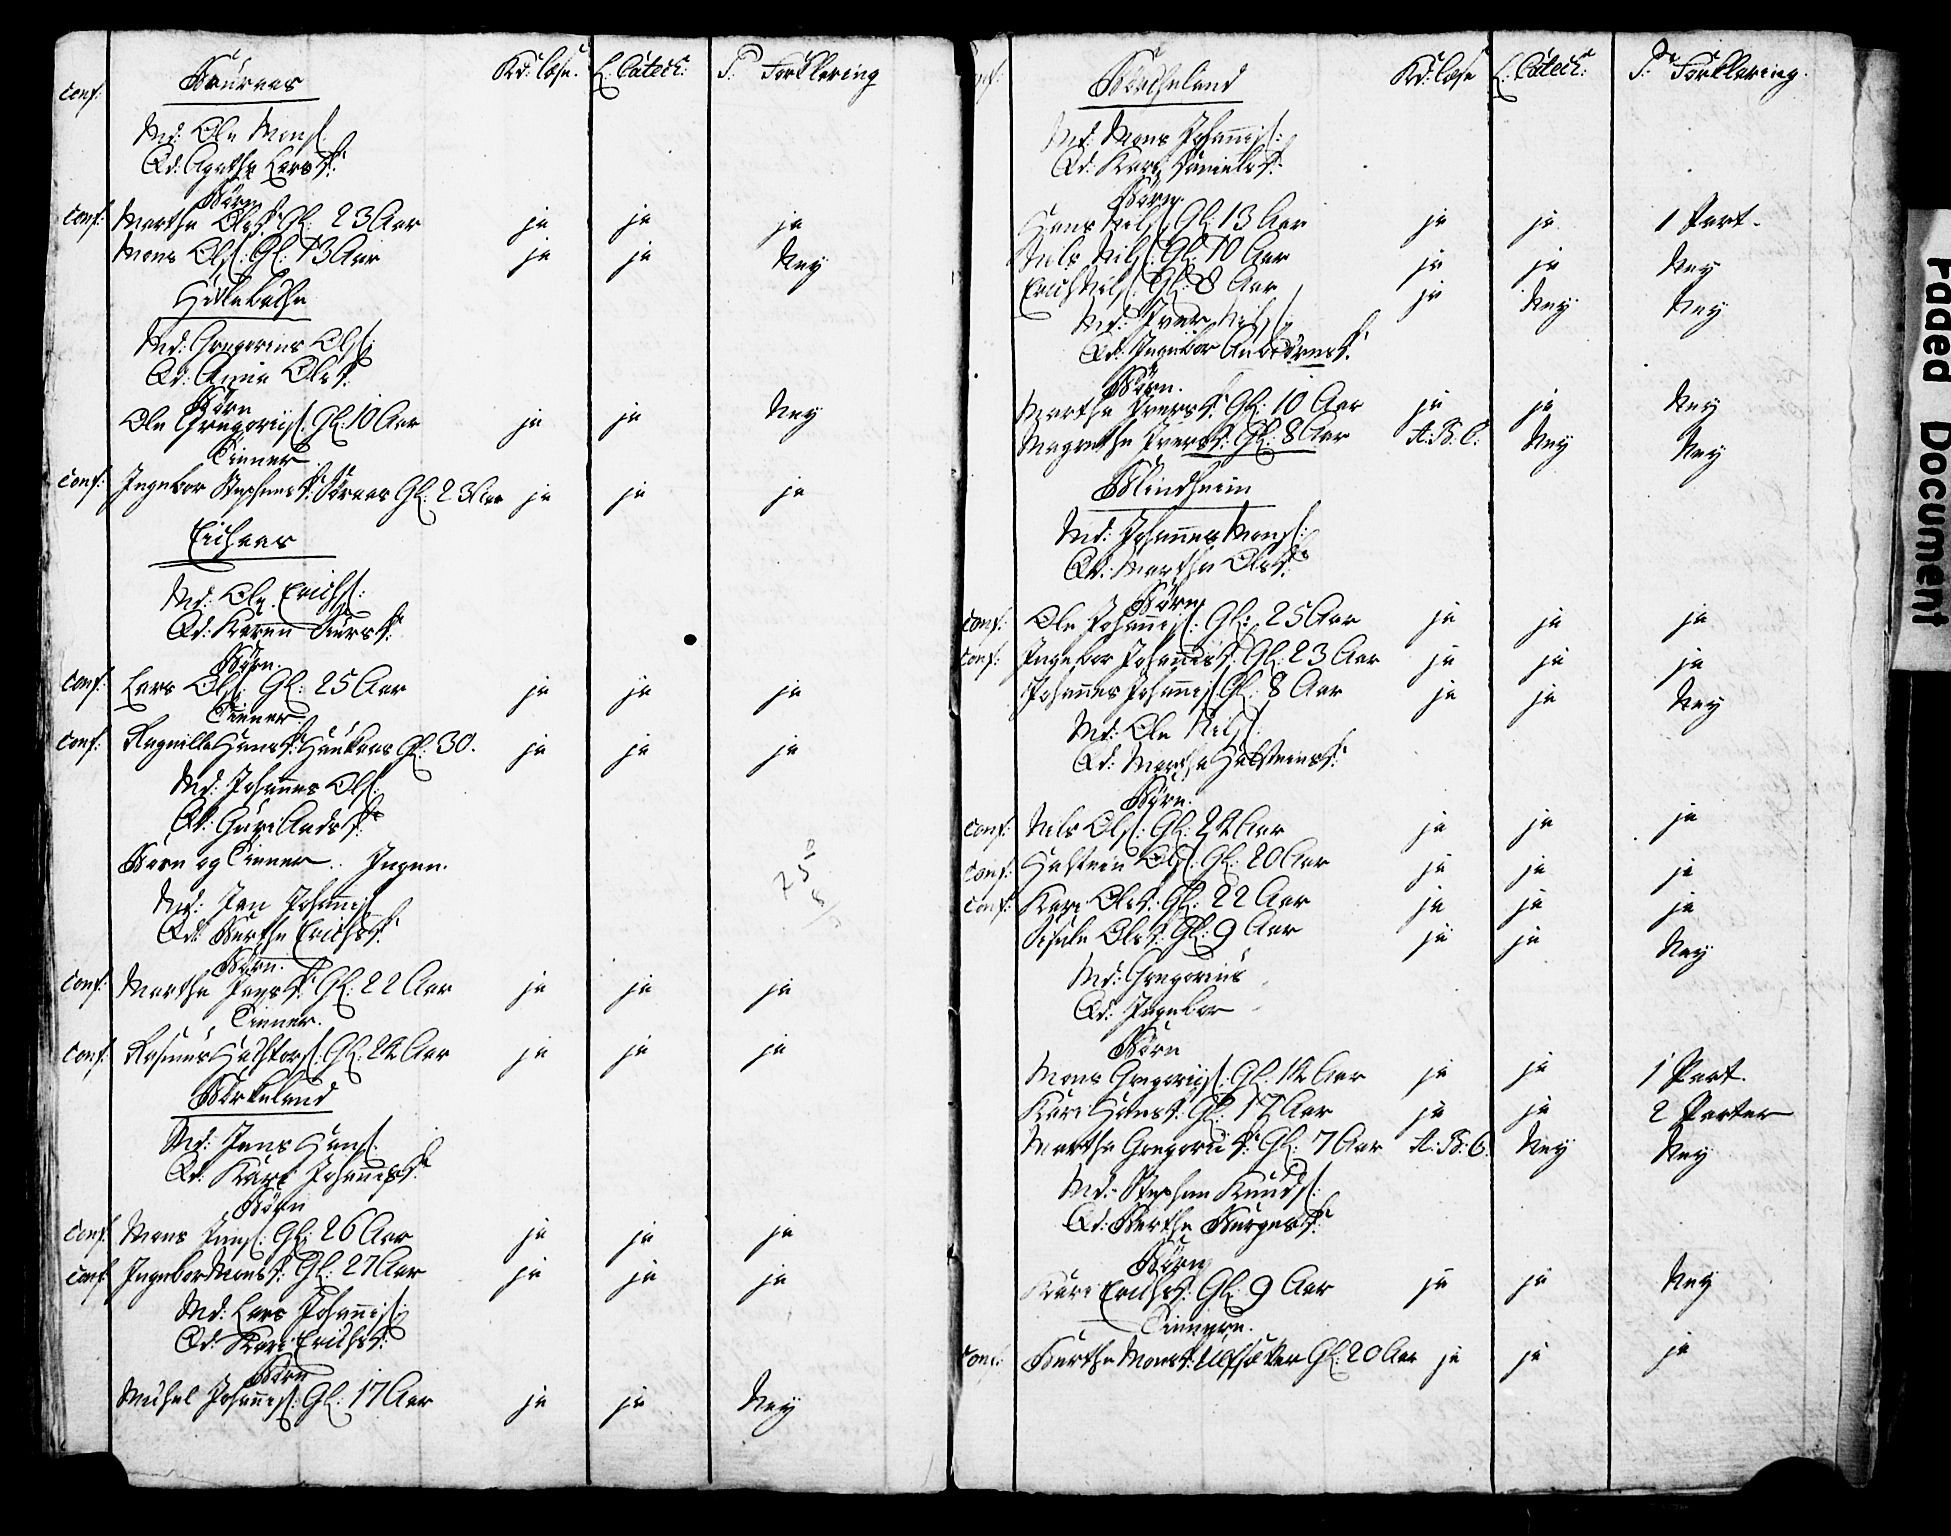 conf: Kd: læse. L: Catech: P: Forklering
Md: Ole Mons:
Qd: Agathe Larsd:
Börn
conf: Marthe Olsd: Gl: 23 Aar ja ja ja
Mons Ols: Gl: 13 Aar ja ja Ney
Md: Gregorius Ols:
Qd: Anna Olsd:
Börn
Ole Gregorius: Gl: 10 Aar ja ja Ney
Tienner
conf: Ingebor Stephensd: Gl: 23 Aar ja ja ja
Eichaas
Md: Ole Erichs:
Qd: Karen
Börn
conf: Lars Ols: Gl: 25 Aar ja ja ja
Tienner
conf: Ragnille Hansd: Haukaas Gl: 30. ja ja ja
Md: Johannes Ols:
Qd: Guri Andsd:
Børn og Tienner. Ingen.
Md: Jan Johannis:
Qd: Berthe Erichsd:
Börn.
conf: Marthe Jansd: Gl: 22 Aar ja ja ja
Tienner.
conf: Rasmus Gl: 24 Aar ja ja ja
Birkeland
Md: Jens Hans:
Qd: Kari Johannisd:
Börn
conf: Mons Gl: 26 Aar ja ja ja
conf: Ingebor Monsd: Gl: 27 Aar ja ja ja
Md: Lars Johannis:
Qd: Kari Erichsd:
Börn
Michel Johannis: Gl: 17 Aar ja ja Ney
conf: Kd: læse L: Catech: P: Forklaring.
Md: Mons Johannis:
Qd: Kari Danielsd:
Börn.
Hans Nils: Gl: 13 Aar ja ja 1 Part.
Nels Nils: Gl: 10 Aar ja ja Ney
Erich Nils: Gl: 8 Aar ja Ney Ney
Md: Iver Nils:
Qd: Ingebor
Börn.
Marthe Iversd: Gl: 10 Aar ja ja Ney
Magrethe Iversd: Gl: 8 Aar A: B: C: Ney Ney
Blindheim
Md: Johannes Mons:
Qd: Marthe Olsd:
Börn
conf: Ole Johannis: Gl: 25 Aar ja ja ja
conf: Ingebor Johannisd: Gl: 23 Aar ja ja ja
Johannes Johannis: Gl: 8 Aar ja ja Ney
Md: Ole Nils:
Qd: Marthe Halsteinsd:
Börn.
conf: Nels Ols: Gl: 24 Aar ja ja ja
conf: Halstein Ols: Gl: 20 Aar ja ja ja
conf: Kari Olsd: Gl: 22 Aar ja ja ja
Olsd: Gl: 9 Aar ja ja Ney
Md: Gregorius
Qd: Ingebor
Börn
Mons Gregorius: Gl: 14 Aar ja ja 1 Part.
Kari Hansd: Gl: 17 Aar ja ja 2 Parter
Marthe Gregorii d: Gl: 7 Aar A: B: C: Ney Ney
Md: Stephen Knuds:
Qd: Berthe Börgesd:
Börn
Kari Erichsd: Gl: 9 Aar ja ja Ney
Tiennere.
conf: Berthe Monsd: Gl: 20 Aar ja ja ja
Faded Document